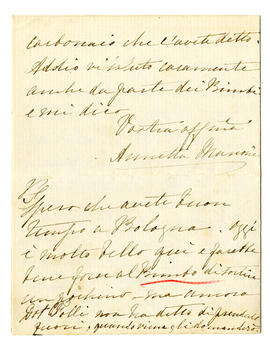 carbonaio che l'avete detto.
Addio vi saluto caramente
anche da parte dei Bimbi
e mi dico
Vostra affma
Annetta
PS
Spero che avete buon
tempo a Bologna. Oggi
è molto bello qui e farebbe
bene forse al Bimbo di sortire
un pochino — ma ancora
Dot non ha detto di prenderlo
fuori, quando viene gli domanderò